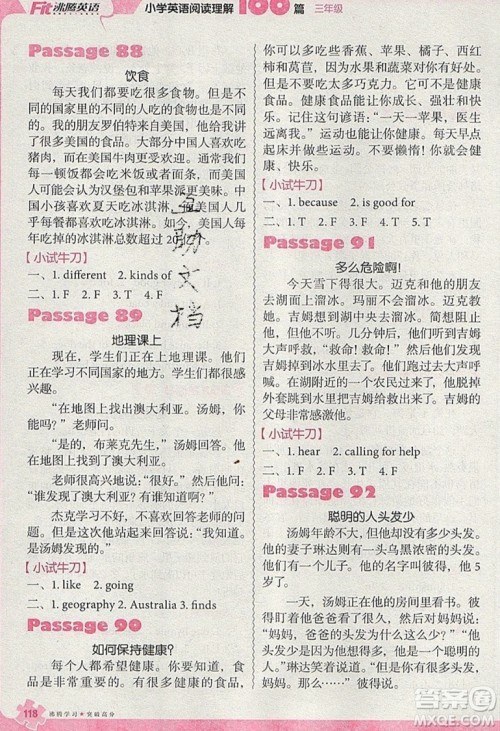 Fit 沸腾英语
小学英语阅读理解 100 篇 三年级
Passage 88
饮食
每天我们都要吃很多食物。但是，在不
同的国家里的不同的人吃的食物也是不同的。
我的朋友罗伯特来自美国，他告诉我很多关
于美国的食品。大部分中国人喜欢吃
猪肉，而在美国牛肉更受欢迎。美国人
每一顿饭通常是米饭或者面条，而
美国人认为汉堡包和苹果派更美味。中
国小孩喜欢夏天吃冰淇淋，美国小孩
几乎每餐都喜欢吃冰淇淋。如今，美国人每
年吃掉的冰淇淋总数超过20亿
【小试牛刀】
一、1. different 2. kinds of
二、1. F 2. F 3. T 4. F
Passage 89
地理课上
现在，学生们正在上地理课。他们
正在学习不同国家的地方。他们很感
兴趣。
“在地图上找出澳大利亚。汤姆，你
能找到吗？”老师问。
“是的，布莱克先生，”汤姆说。然后他
在地图上找到了澳大利亚。
老师很满意，“很好。”然后，他又问：
“谁发现了澳大利亚？”
杰克学习不好，不喜欢回答老师的问
题。但是这次他站起来回答：“我知道，
是汤姆发现的。”
【小试牛刀】
一、1. like 2. going
二、1. geography 2. Australia 3. finds
Passage 90
如何保持健康？
每个人都希望健康。健康的食品有益
健康。我们应该选择正确的食品。我们应
118 沸腾学习★突破高分
该多吃些香蕉、苹果、橘子、西瓜，因为
水果和蔬菜对我们的健康有益。但
是，不要吃太多巧克力。它不是健康食
品。健康食品能让你成长、强壮和快
乐。记住这句谚语：“一天一苹果，医生
远离我。”运动也能让你健康。每天早
上起床后跑跑步。不要懒惰！你会健
康、快乐。
【小试牛刀】
一、1. because 2. is good for
二、1. F 2. F 3. T 4. T
Passage 91
多么危险啊！
今天雪下得很大。迈克和他的朋友
去湖面上溜冰。玛丽不敢溜冰。迈克和
吉姆想到湖中央溜冰。他们在冰面上
跑。几分钟后，他们听到吉姆的叫声。他
大声呼救，“救命！救命！”吉姆的帽子
和围巾都掉到冰水里了。他的朋友们也
大声呼救。在湖附近的一些人过来帮
他。他们把吉姆从冰水里救出。吉姆的
父母非常感谢他们。
【小试牛刀】
一、1. hear 2. calling for help
二、1. F 2. T 3. F 4. T
Passage 92
聪明的人头发少
汤姆年龄不大，但是他没有多少头发。
他的妻子琳达则有一头乌黑浓密的头
发。他们有一个可爱的女儿，叫安妮。她
5岁了。
一天，汤姆在他的房间看书。安妮看
到他的头发，然后跑去问妈妈：“妈
妈，爸爸的头发怎么这么少呢？”
“因为你的爸爸很聪明，”妈妈回
答。琳达笑着说：“但是妈妈，你为什